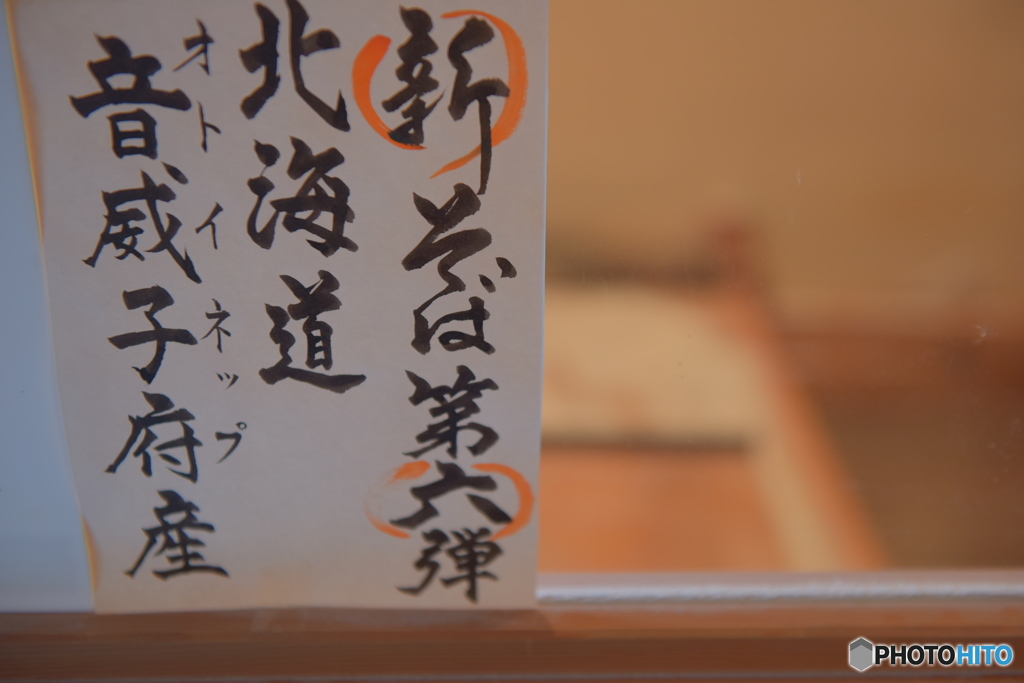 新そば第六弾
北海道
音威子府産
オトイネップ
PHOTOHITO